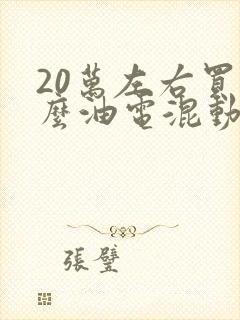 20萬左右買
麼油電混動
張璧